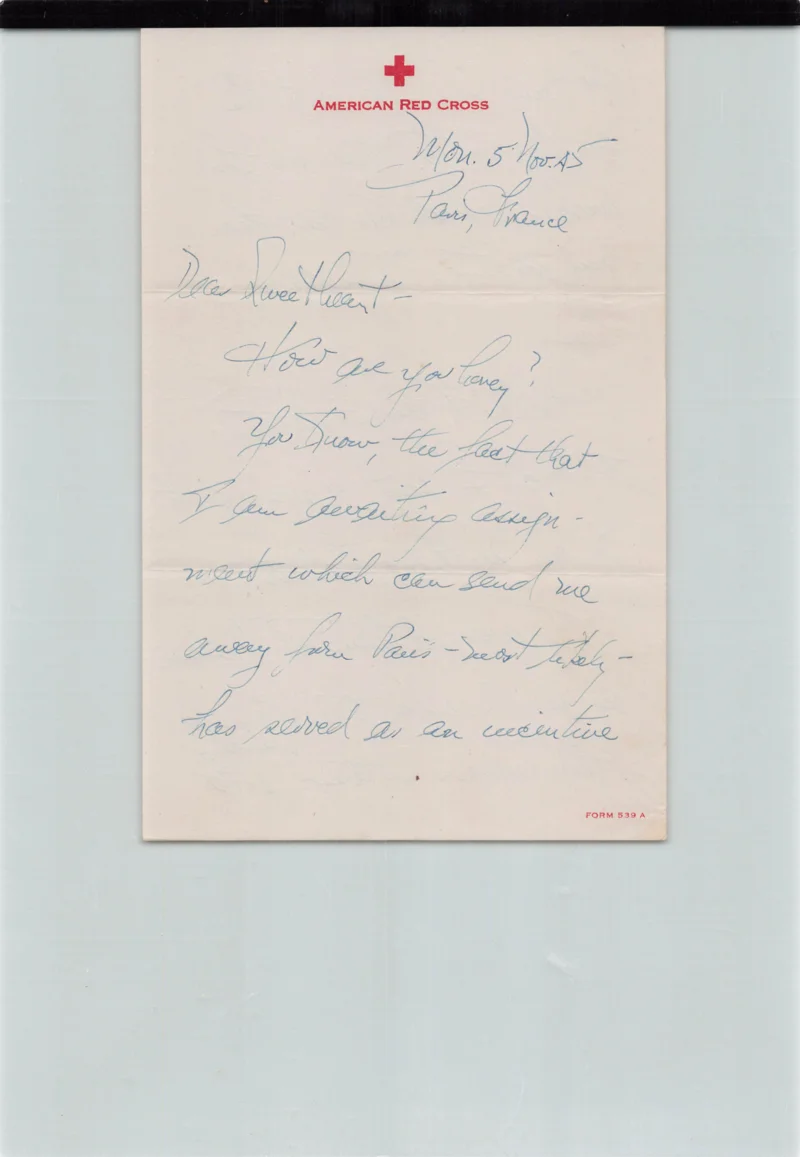 AMERICAN RED CROSS
Mon. 5 Nov. 45
Paris, France
Dear Sweetheart -
How are you honey?
You know, the fact that
I am awaiting assign-
ment which can send me
away from Paris - most likely -
has served as an incentive
FORM 539 A